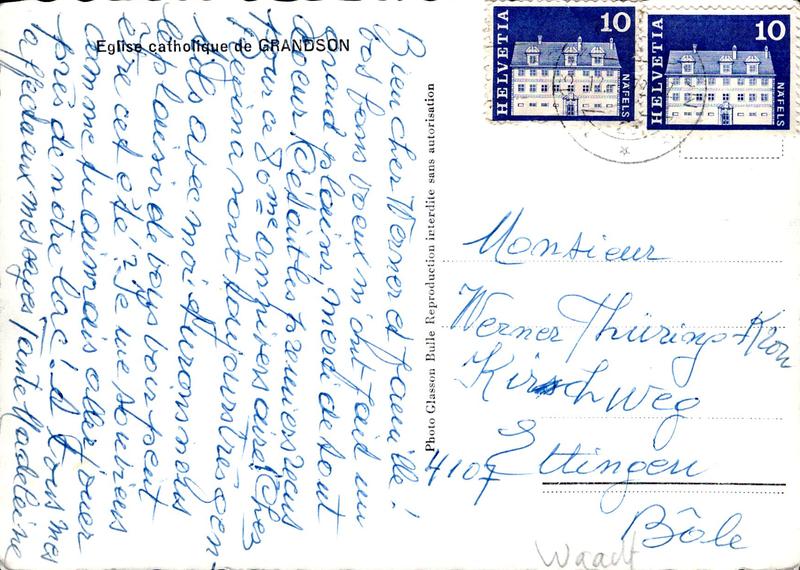 Eglise catholique de GRANDSON
Bien cher Werner et famille !
Vos bons voeux m'ont fait un
grand plaisir, merci de tout
coeur. C'étaient les premiers reçus
pour ce 80me anniversaire. Chez
Regina sont toujours très gen
tils avec moi. Aurons nous
le plaisir de vous voir peut
être cet été ? Je me souviens
comme tu aimais aller jouer
près de notre lac ! A tous mes
affectueux messages Tante Madeleine
Photo Glasson Bulle Reproduction interdite sans autorisation
HELVETIA
10
NÄFELS
HELVETIA
10
NÄFELS
Monsieur
Werner Thüring-
Kirschweg 2
4107 Ettingen
Bôle
Waadt